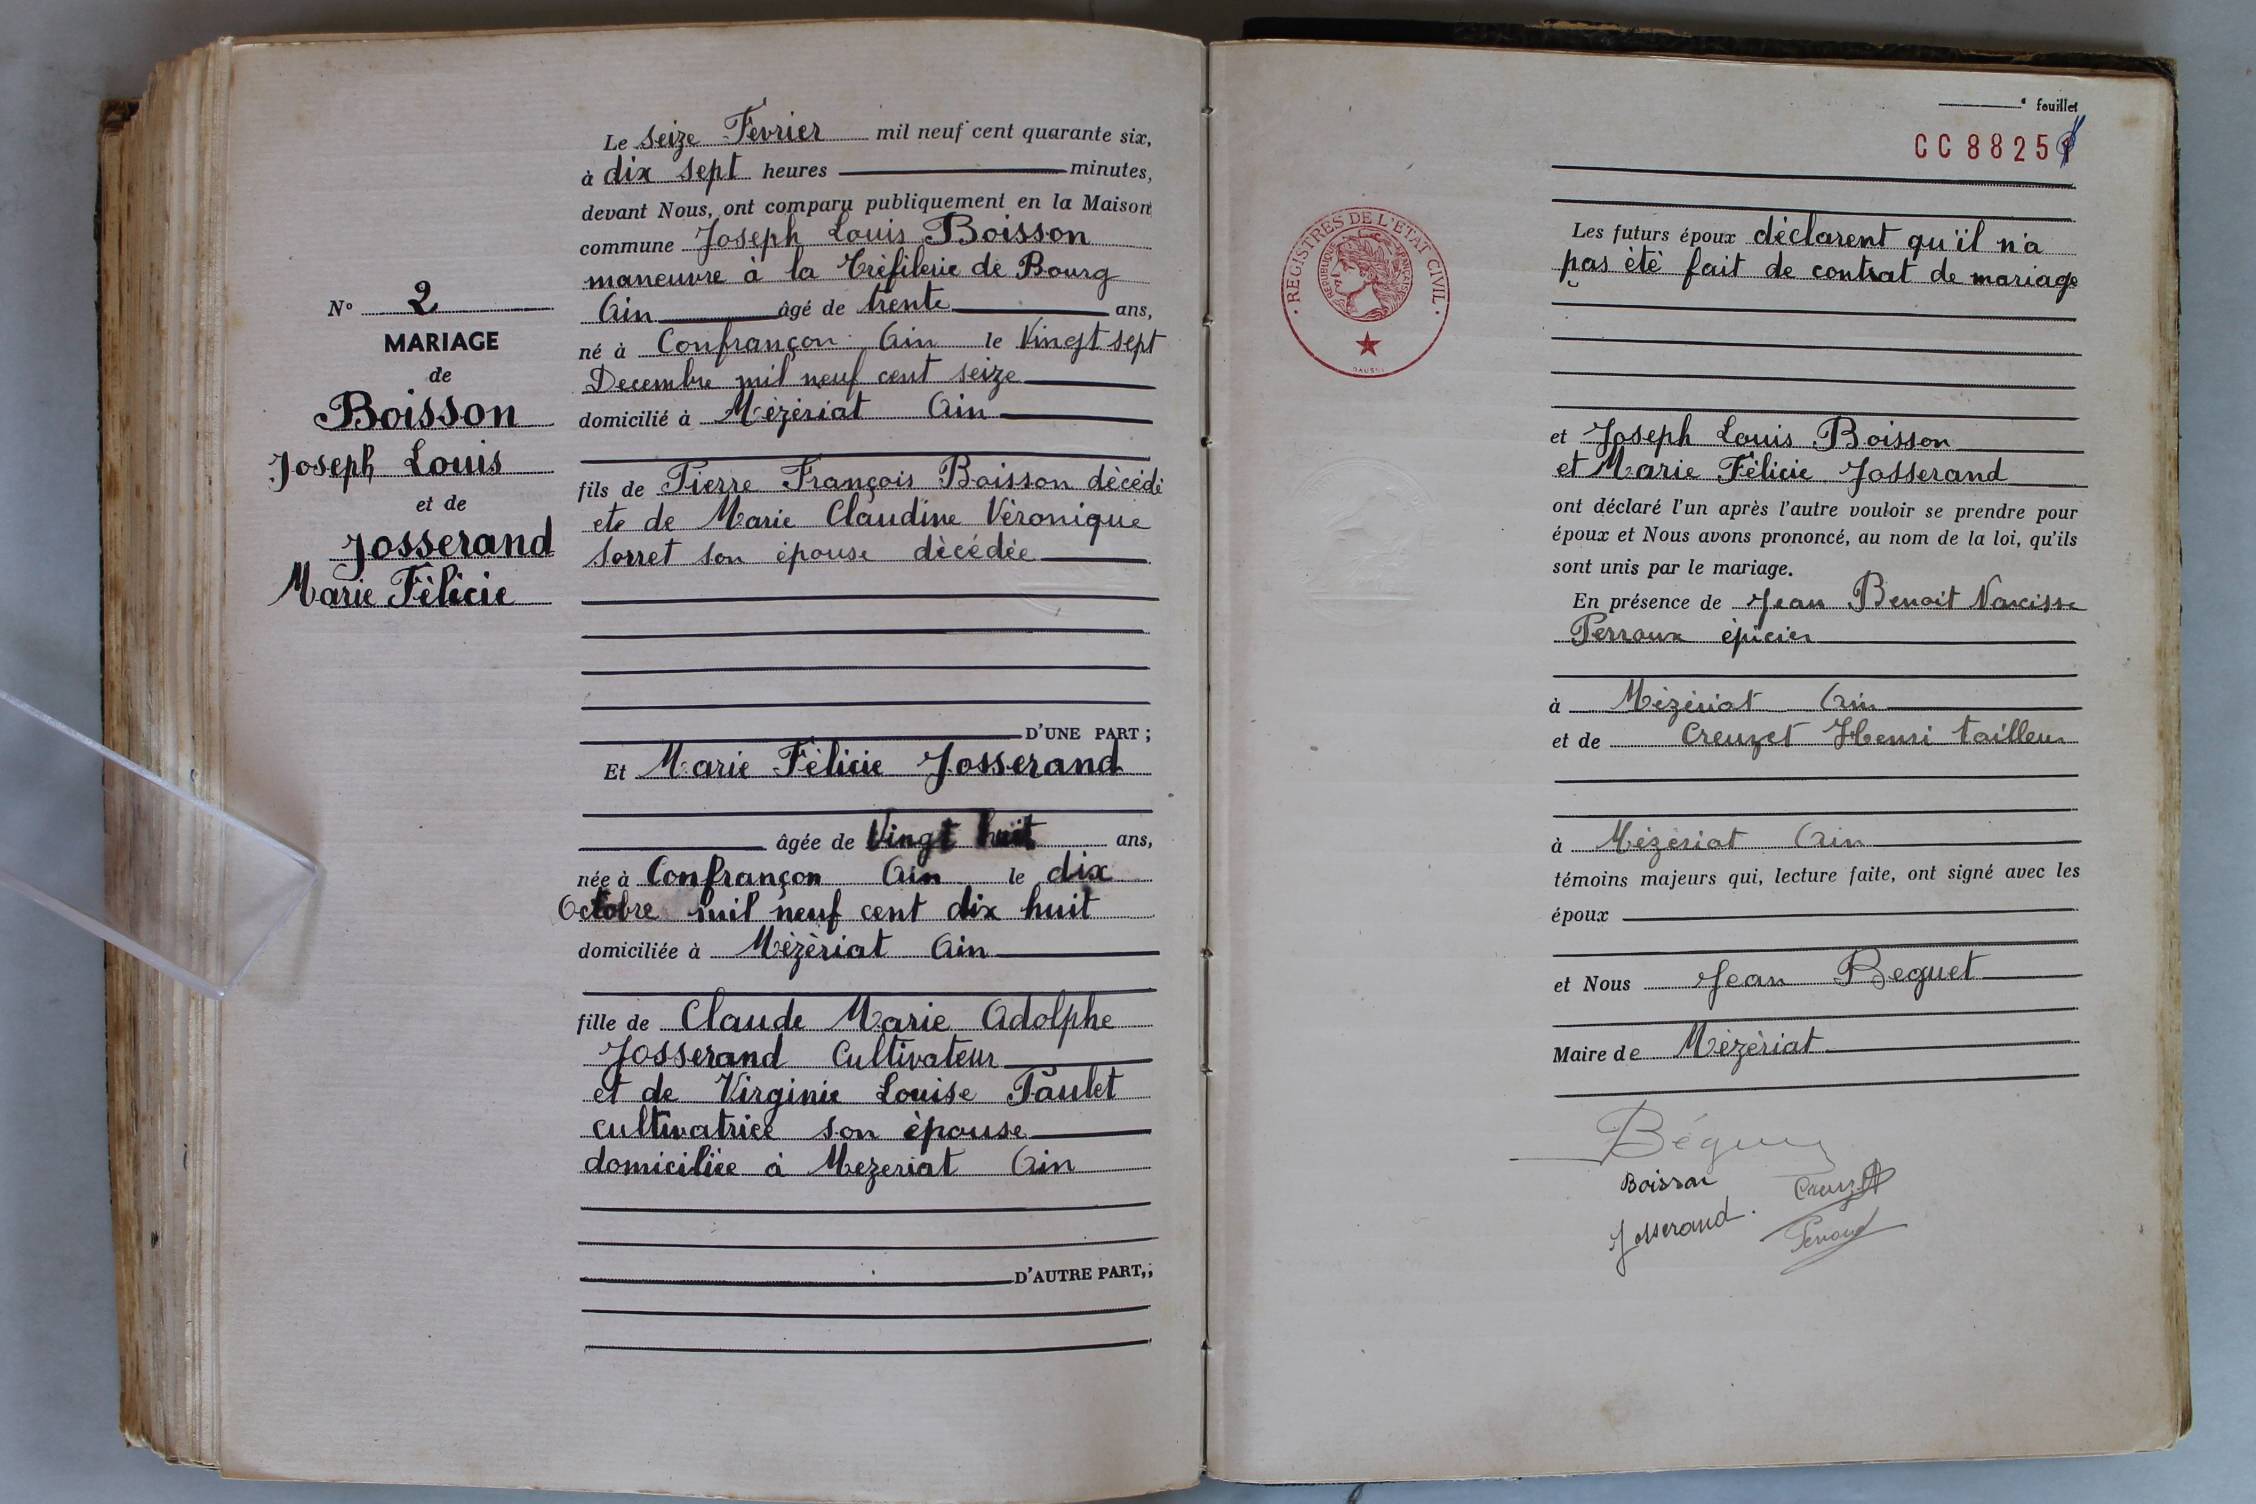 Le seize Fevrier mil neuf cent quarante six,
à dix sept heures minutes,
devant Nous, ont comparu publiquement en la Maison
commune Joseph Louis Boisson
maneuvre à la Trèfilerie de Bourg
Ain âgé de trente ans,
né à Confrançon Ain le Vingt sept
Decembre mil neuf cent seize
domicilié à Mèzèriat Ain
fils de Pierre François Boisson dècèdè
ete de Marie Claudine Vèronique
Sorret son èpouse dècèdèe
D'UNE PART ;
Et Marie Fèlicie Josserand
âgée de Vingt huit ans,
née à Confrançon Ain le dix
Octobre mil neuf cent dix huit
domiciliée à Mèzèriat Ain
fille de Claude Marie Adolphe
Josserand Cultivateur
et de Virginie Louise Paulet
cultivatrice son èpouse
domicilièe à Mezeriat Ain
D'AUTRE PART,;
N° 2
MARIAGE
de
Boisson
Joseph Louis
et de
Josserand
Marie Fèlicie
feuillet
CC 8825
REGISTRES DE L'ETAT CIVIL
REPUBLIQUE FRANÇAISE
Les futurs époux dèclarent qu'il n'a
pas ètè fait de contrat de mariage
et Joseph Louis Boisson
et Marie Fèlicie Josserand
ont déclaré l'un après l'autre vouloir se prendre pour
époux et Nous avons prononcé, au nom de la loi, qu'ils
sont unis par le mariage.
En présence de Jean Benoit Narcisse
Perroux èpicier
à Mèzèriat Ain
et de Creuzet Henri tailleur
à Mèzèriat Ain
témoins majeurs qui, lecture faite, ont signé avec les
époux
et Nous Jean Beguet
Maire de Mèzèriat
Béguet
Boisson Creuzet
Josserand.